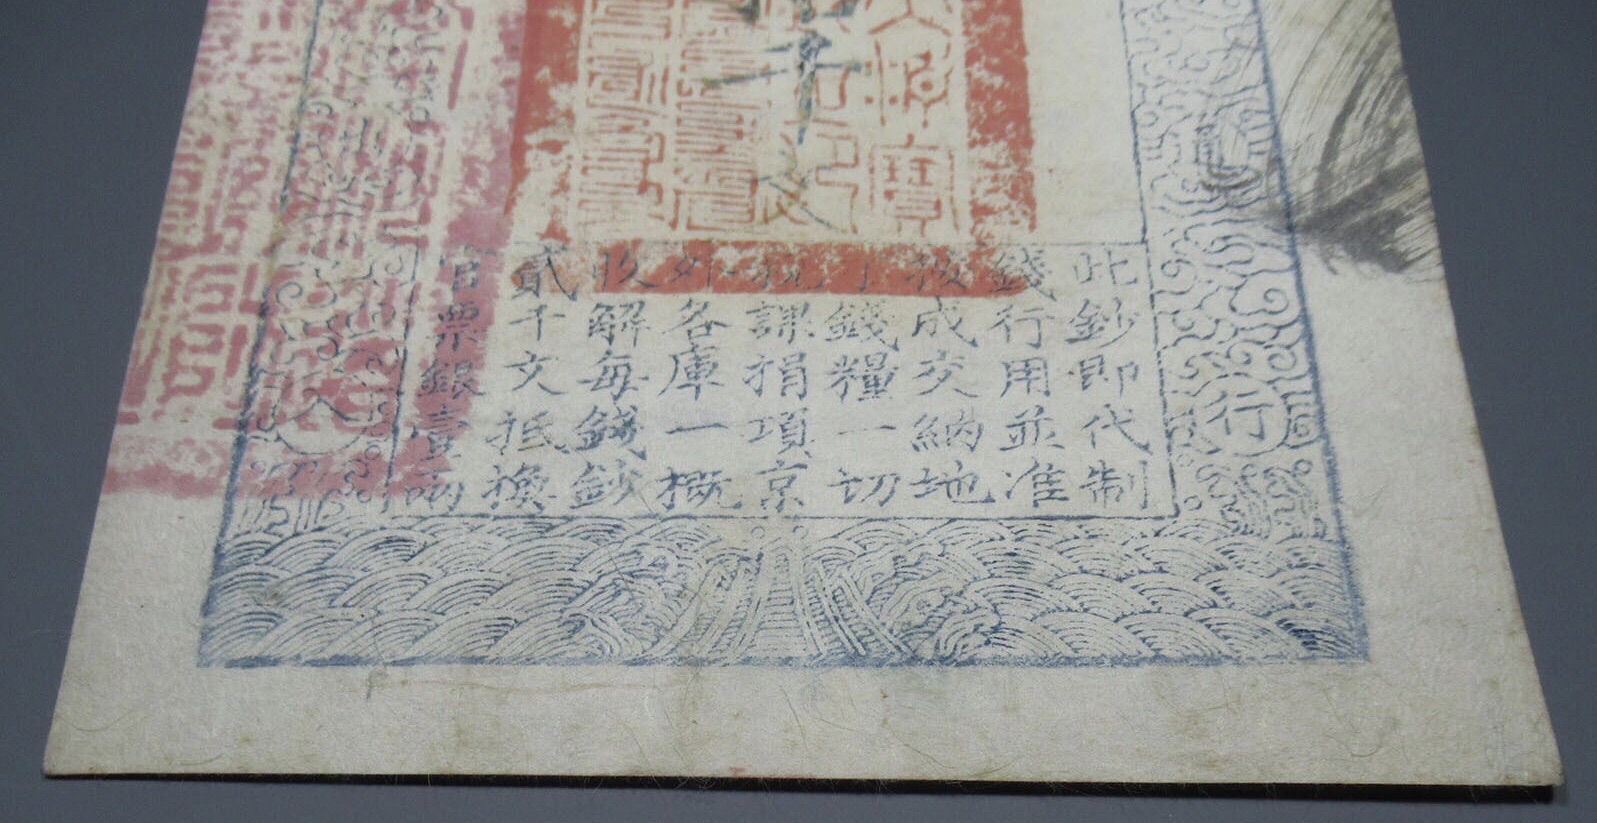 千
文
此鈔即代制
錢行用並准
按成交納地
丁錢糧一切
税課捐項京
外各庫一概
收解每錢鈔
貳千文抵換
官票銀壹兩
行